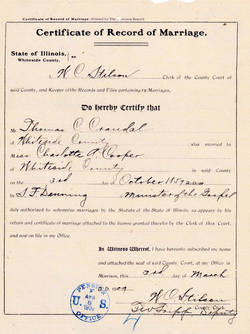 Certificate of Record of Marriage.
State of Illinois,
Whiteside County,
W C Stilson Clerk of the County Court of
said County, and Keeper of the Records and Files pertaining to Marriages,
Do hereby Certify that
Mr Thomas C Crandal
of Whiteside County was married to
Miss Charlotte A Cooper
of Whiteside County in said County
on the 3rd day of October 1857
by Minister of the Gospel
duly authorized to solemnize marriages by the Statute of the State of Illinois, as appears by his
return and certificate attached to the license granted therefor by the Clerk of this Court
and now on file in my Office.
In Witness Whereof, I have hereunto subscribed my name and
attached the seal of said County Court, at my Office in
Morrison, this 3rd day of March
W C Stilson
County Clerk
Deputy
PENSION
U. S.
APR
6
OFFICE